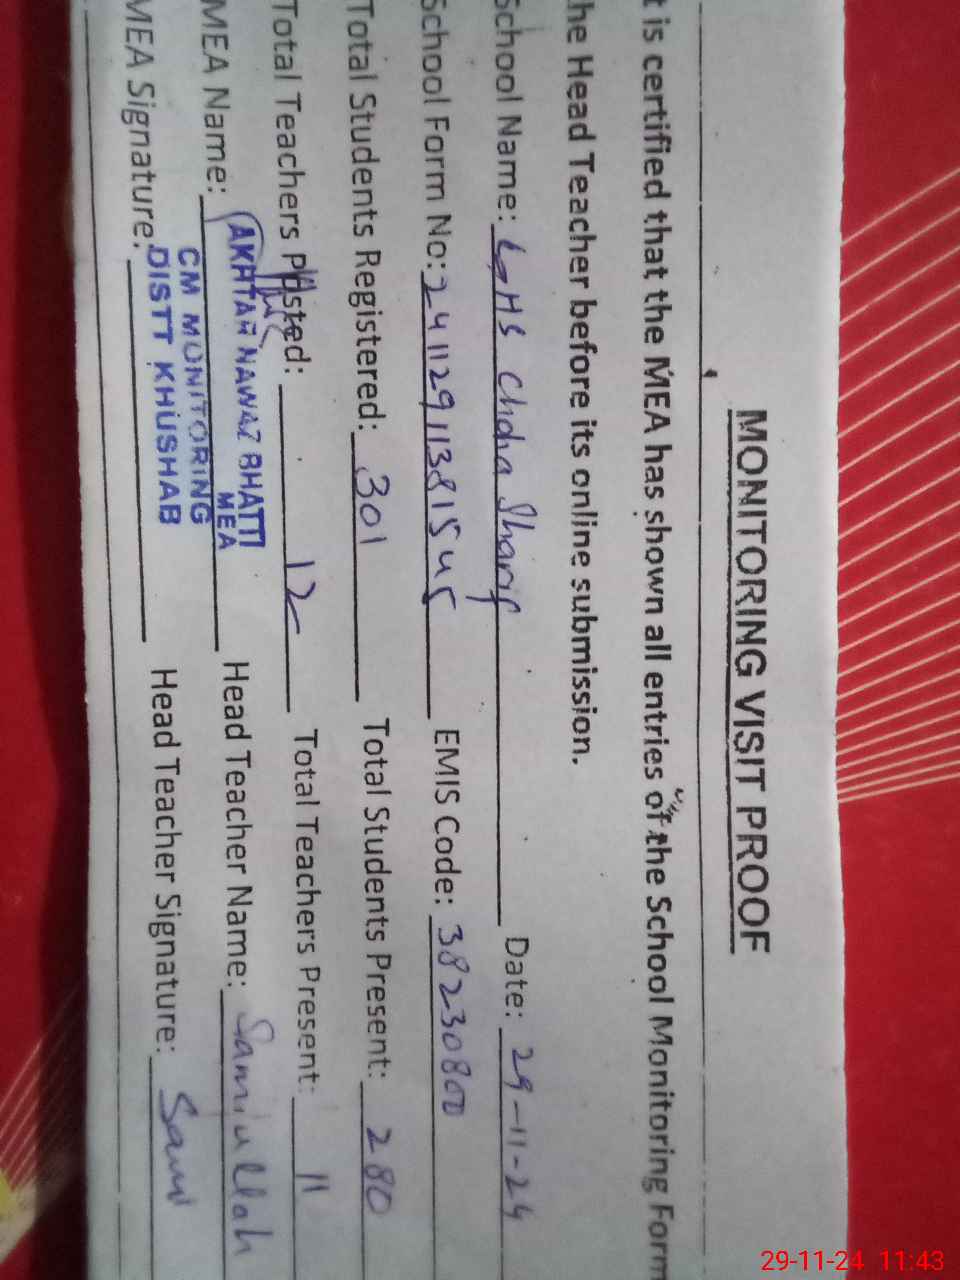 MONITORING VISIT PROOF
t is certified that the MEA has shown all entries of the School Monitoring Form
he Head Teacher before its online submission.
School Name: GHS Choha Sharif Date: 29-11-24
School Form No: 24112911381545 EMIS Code: 38230800
Total Students Registered: 301 Total Students Present: 280
Total Teachers Posted: 12 Total Teachers Present: 11
MEA Name: AKHTAR NAWAZ BHATTI Head Teacher Name: Samiullah
MEA
CM MONITORING
MEA Signature: DISTT KHUSHAB Head Teacher Signature: Sami
29-11-24 11:43